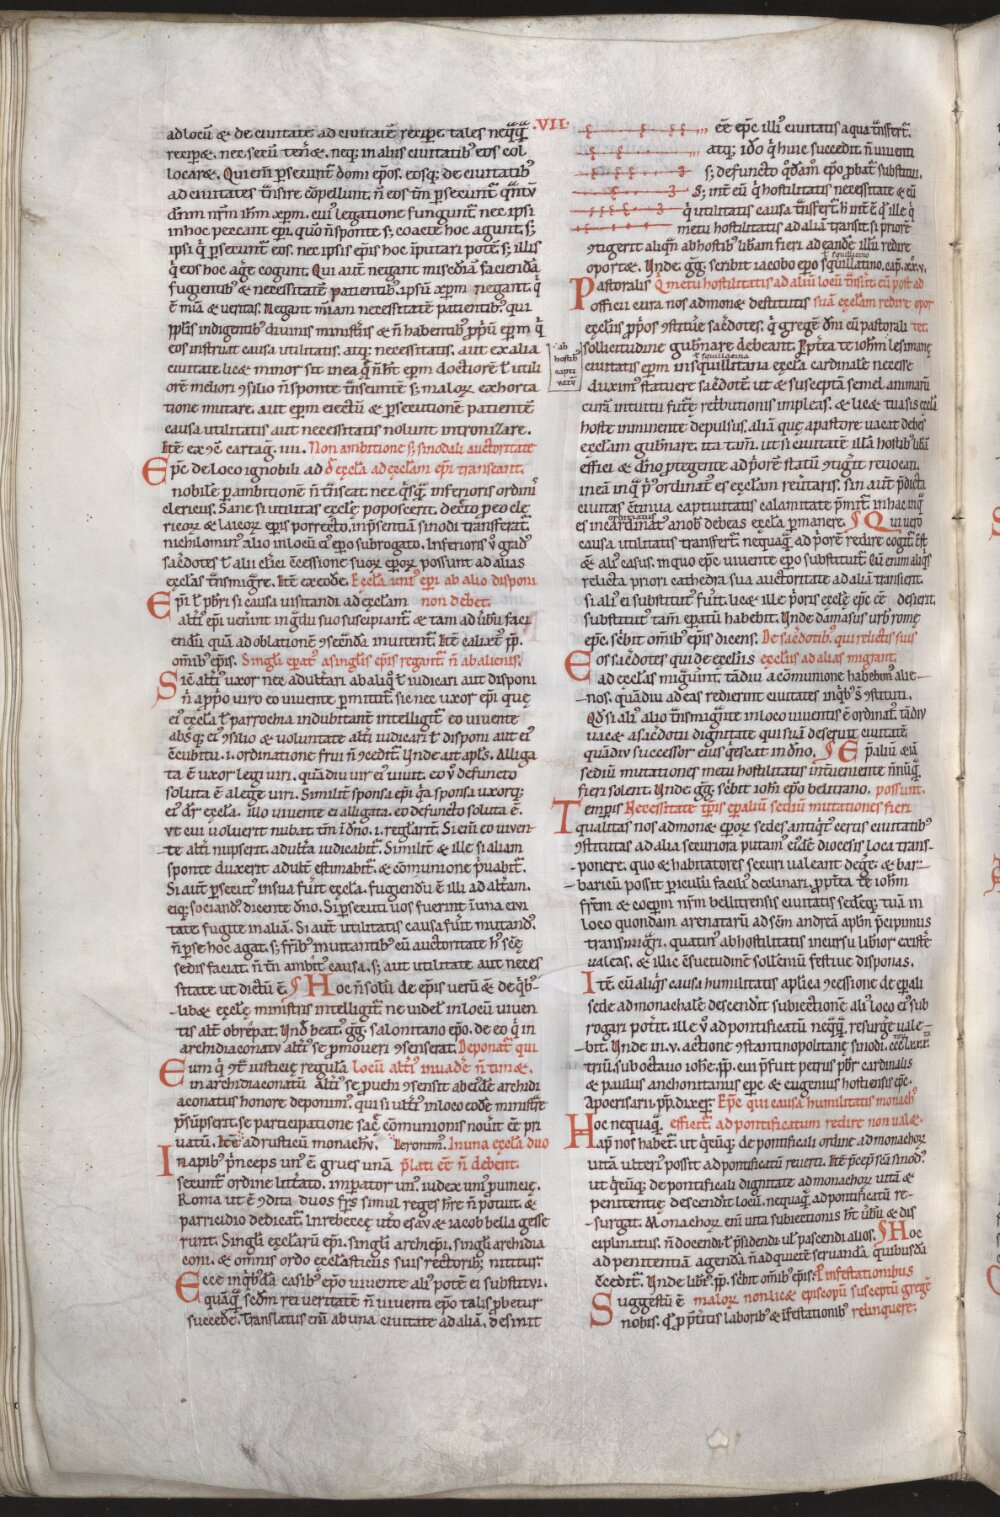 .VII.
ad locū & de ciuitate ad ciuitatē recipe. tales neq̄q̄
recipe. nec secū tenēe. neq; in aliis ciuitatib' eos col
locare. Qui eni psecuunt domi epos. eosq; de ciuitatib'
ad ciuitates tnsire cōpellunt. n̄ eos tm psecunt qntū
dnm nrm ihm xpm. cui' legatione fungunt nec ipsi
in hoc peccant epi. quō n̄ sponte s; coacte hoc agunt. s;
ipsi q̇ psecunt eos. nec ipsis epis hoc iputari potē s; illis
q̇ eos hoc agēe cogunt. Qui aut negant misedia facienda
fugientib' & necessitatē patientib'. ipsū xpm negant. q̇
ē mia & ueritas. Negant miam necessitatē patientib'. qui
pplis indigentib' diuinis ministis & n̄ habentib' pprū epm q̇
eos instruat causa utilitatis. atq; necessitatis. aut ex alia
ciuitate licet minor sit in ea q̄ n̄ ht epm doctiore ł utili
ore meliori 9silio n̄ sponte tnseunte s; maloꝝ exhorta
tione mutare. aut epm eiectū & psecutione patiente
causa utilitatis aut necessitatis nolunt intronizare.
Itē ex 9c̄ cartag. iiii. Non ambitione s; sinodali auctoritate
Epc de loco ignobili ad de eccła ad eccłam epi transeant.
nobile p ambitionē n̄ tnseat. nec q̇sq̄ inferioris ordini'
clericus. Sane si utilitas eccłę poposcerit. decto p eo cle
ricoꝝ & laicoꝝ epis porrecto. in psentia sinodi transferat.
nichilomin' alio in locū ei' epo subrogato. Inferioris ū grad'
sacdotes ł alii clici 9cessione suoꝝ epoꝝ possunt ad alias
eccłas tnsmigre. Itē ex eode. Eccła uni' epi ab alio disponi
Epi ł pbri si causa uisitandi ad eccłam non debet.
alti' epi uenint in gdu suo suscipiant & tam ad ūbū faci
endū. qua ad oblationē 9secnda inuitent. Itē calixt' pp.
omib' epis. Singli epat' a singlis epis regant. n̄ ab alienis.
Sic alti' uxor nec adultari ab aliq ł iudicari aut disponi
n̄ appo uiro eo uiuente pmittit. sic nec uxor epi que
ei' eccła ł parrochia indubitant intelligit eo uiuente
absq; ei' 9silio & uoluntate alti' iudicari ł disponi aut ei'
9cubitu. i. ordinatione frui n̄ 9cedit. Unde ait apls. Alliga
ta ē uxor legi uiri. quādiu uir ei' uiuit. eo ū defuncto
soluta ē a lege uiri. Similit sponsa epi q̇a sponsa uxorq;
ei' dr eccła. illo uiuente ei alligata. eo defuncto soluta ē.
ut cui uoluerit nubat. tm i dno. i. reglarit. Si em eo uiuen-
te alti nupserit. adulta iudicabit. Similit & ille si aliam
sponte duxerit adult estimabit. & cōmunione puabit.
Si aut psecut' in sua fuit eccła. fugiendū ē illi ad altam.
eiq; sociand'. dicente dno. Si psecuti uos fuerint i una ciui
tate fugite in alia. Si aut utilitatis causa fuit mutand'.
n̄ p se hoc agat. s; frib' inuitantib' eū auctoritate h' scę
sedis faciat. n̄ tn ambit' causa. s; aut utilitate aut neces
sitate ut dictū ē. ¶ Hoc n̄ solū de epis uerū & de qb'-
libet eccłę ministis intelligit ne uidel' in locū uiuen
tis alt' obrepat. Und' beat'. gg. salonitano epo. de eo q̇ in
archidiaconatu alti' se pmoueri 9senserat. Deponat qui
Eum q̇ 9t' iusticie regula locū alti' inuadē n̄ timet.
in archidiaconatū alti' se puehi 9sensit ab ei'dē archidi
aconatus honore deponim'. qui si ulti' in loco eode ministe
psūpserit. se participatione sacē cōmunionis nouit ēē pri
uatū. Itē ad rusticū monachū. Ieronim'. In una eccła duo
In apib' pnceps un' ē. grues unā plati ēē n̄ debent.
secunt ordine littato. impator un'. iudex un' puincię.
Roma ut ē 9dita. duos frs simul reges hre n̄ potuit. &
parricidio dedicat. In rebecce uto esau & iacob bella gesse
runt. Singli eccłarū epi. singli archiepi. singli archidia
coni. & omnis ordo eccłasticus suis rectorib; nititur.
Ecce in qb'dā casib' epo uiuente ali' potē ei substitui.
quāq sedm rei ueritatē n̄ uiuenti epo talis pbetur
succede. Translatus em ab una ciuitate ad aliā. desinit
ēē epc illi' ciuitatis a qua tnsfert.
atq; ido q̇ huic succedit. n̄ uiuenti
s; defuncto q̇dam epo pbat substitui.
S; int eū q̇ hostilitatis necessitate & eū
q̇ utilitatis causa tnsfert h' int ē q̇ ille q̇
metu hostilitatis ad aliā transit. si priore
9tigerit aliqn ab hostib' libam fieri ad eandē illū redire
oportet. Unde. gg. scribit iacobo epo squillatino. cap. xx.v.
ł squilicino
Pastoralis Q metu hostilitatis ad aliū locū tnsit. eū post ad
officii cura nos admonet destitutis suā eccłam redire opor
eccłiis ppos 9stitue sacdotes. q̇ grege dni eū pastorali tet.
ab
hostib'
capta
ratū
sollicitudine gubnare debeant. Ppterea te iohm lesimanę
ł squillacina
ciuitatis epm in squillitaria eccła cardinale necesse
duxim' statuere sacdotē. ut & suscepta semel animarū
curā intuitu futę retbutionis impleas. & licet tua sis eccła
hoste imminente depulsus. alia que a pastore uacat debes
eccłam gubnare. ita tam. ut si ciuitatē illā hostib' libā
effici & dno ptegente ad pore statū 9tigit reuocari.
in eā in q̄ p' ordinat' es eccłam reutaris. sin aut pdicta
ciuitas 9tinua captiuitatis calamitate pmit. in hac in q̄
ordinatus
es incardinat' a nob' debeas eccła pmanere. ¶ Qui uero
causa utilitatis transfert. nequaq̄ ad pore redire cogit. Est
& ali' casus. in quo epc uiuente epo substituit. Cū enim aliq̇s
relicta priori cathedra sua auctoritate ad aliā transierit.
si ali' ei substitut' fuit. licet ille poris eccłę epc ēē desierit.
substitut' tam epatū habebit. Unde damasus urb' rome
epc. scbit omib' epis dicens. De sacdotib'. qui relictis suis
Eos sacdotes qui de eccłiis eccłiis ad alias migrant.
ad eccłas migunt. tādiu a cōmunione habebim' alie-
nos. quādiu ad eas redierint ciuitates in qb' s 9stituti.
Qd si ali' alio tnsmigante in loco uiuentis ē ordinat'. tādiu
uacet a sacdotii dignitate qui suā deseruit ciuitatē
quādiu successor eius q̇escat in dno. ¶ Epaliū etiā
sediū mutationes metu hostilitatis intueniente nnūq̄
fieri solent. Unde. gg. scbit iohi epo belitrano. possunt.
Temporis Necessitate tpis epaliū sediū mutationes fieri
qualitas nos admonet epoꝝ sedes antiq̇t' certis ciuitatib'
9stitutas ad alia securiora putam' ei'dē diocesis loca trans-
ponere. quo & habitatores securi ualeant dege. & bar-
baricū possit piculū facili' declinari. pptea te iohm
frem & coepm nrm bellitrensis ciuitatis sedēq; tuā in
loco quondam arenatarū ad scm andreā aplm pcipimus
transmigri. quatin' ab hostilitatis incursu libior existe
ualeas. & illic 9suetudinē sollenniū festiue disponas.
Itē cū aliqs causa humilitatis aplica 9cessione de epali
sede ad monachale descendit subiectionē ali' loco ei' sub
rogari potit. ille ū ad pontificatū neq̄q̄. resurge uale-
bit. Unde in. v. actione 9stantinopolitane sinodi.
triū sub octauo iohe. pp. cui pfuit petrus pbr cardinalis
& paulus anchonitanus epc & eugenius hostiensis epc.
Apocrisarii pp dixer. Epc qui causa humilitatis monach'
Hoc nequaq̄. efficit. ad pontificatum redire non ualet.
ap nos habet. ut q̇cūq; de pontificali ordine ad monachoꝝ
uitā ulteri' possit ad pontificatū reuerti. Itē pcep scm sinod'.
ut q̇cūq; de pontificali dignitate ad monachoꝝ uitā &
penitentię descendit locū. nequaq̄. ad pontificatū re-
surgat. Monachoꝝ em uita subiectionis ht ūbū & dis
ciplinatus. n̄ docendi. ł psidendi. ul' pascendi alios. ¶ Hoc
ad penitentiā agendā n̄ ad quietē seruandā. quibusdā
9cedit. Unde libi'. pp. scbit omib' epis. P infestationibus
Suggestū ē maloꝝ non licet episcopū susceptū gregē
nobis. q̇ p ptitis laborib' & ifestationib' relinquere.